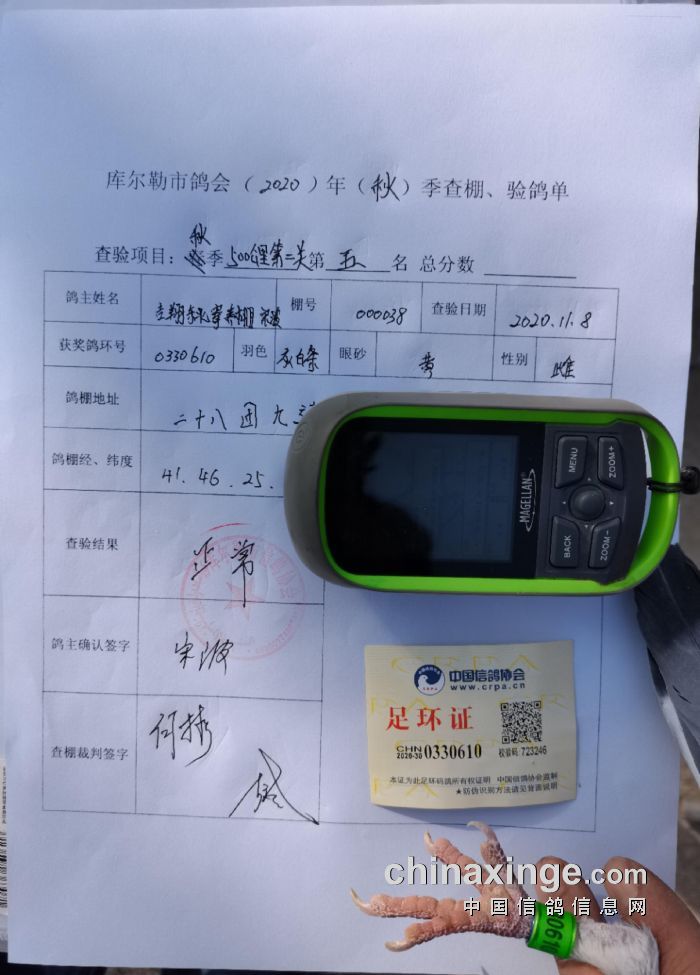 库尔勒市鸽会（2020）年（秋）季查棚、验鸽单
秋
查验项目：季 500公里第二关 第 五 名 总分数
鸽主姓名 棚号 000038 查验日期 2020.11.8
获奖鸽环号 0330610 羽色 灰白条 眼砂 黄 性别 雌
鸽棚地址 二十八团九
鸽棚经、纬度 41.46.25.
查验结果 正常
鸽主确认签字 宋波
查棚裁判签字
MAGELLAN
MENU
ZOOM+
BACK
ZOOM-
中国信鸽协会
CRPA
www.crpa.cn
足环证
CHN
2020-30 0330610 校验码 723246
本证为此足环码鸽所有权证明 中国信鸽协会监制
★防伪识别方法请见背面说明
chinaxinge.com
中国信鸽信息网